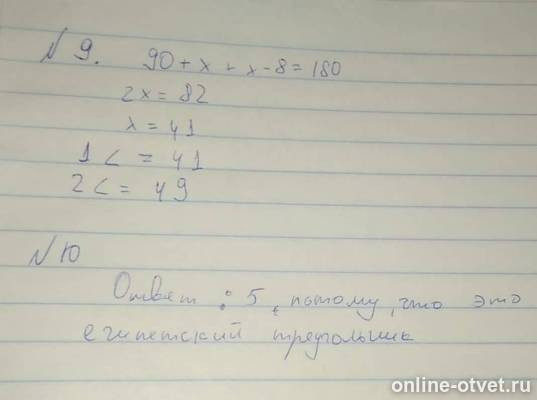 № 9. 90 + x + x - 8 = 180
2x = 82
x = 41
1 < = 41
2 < = 49
№ 10
Ответ : 5, потому, что это
египетский треугольник
online-otvet.ru